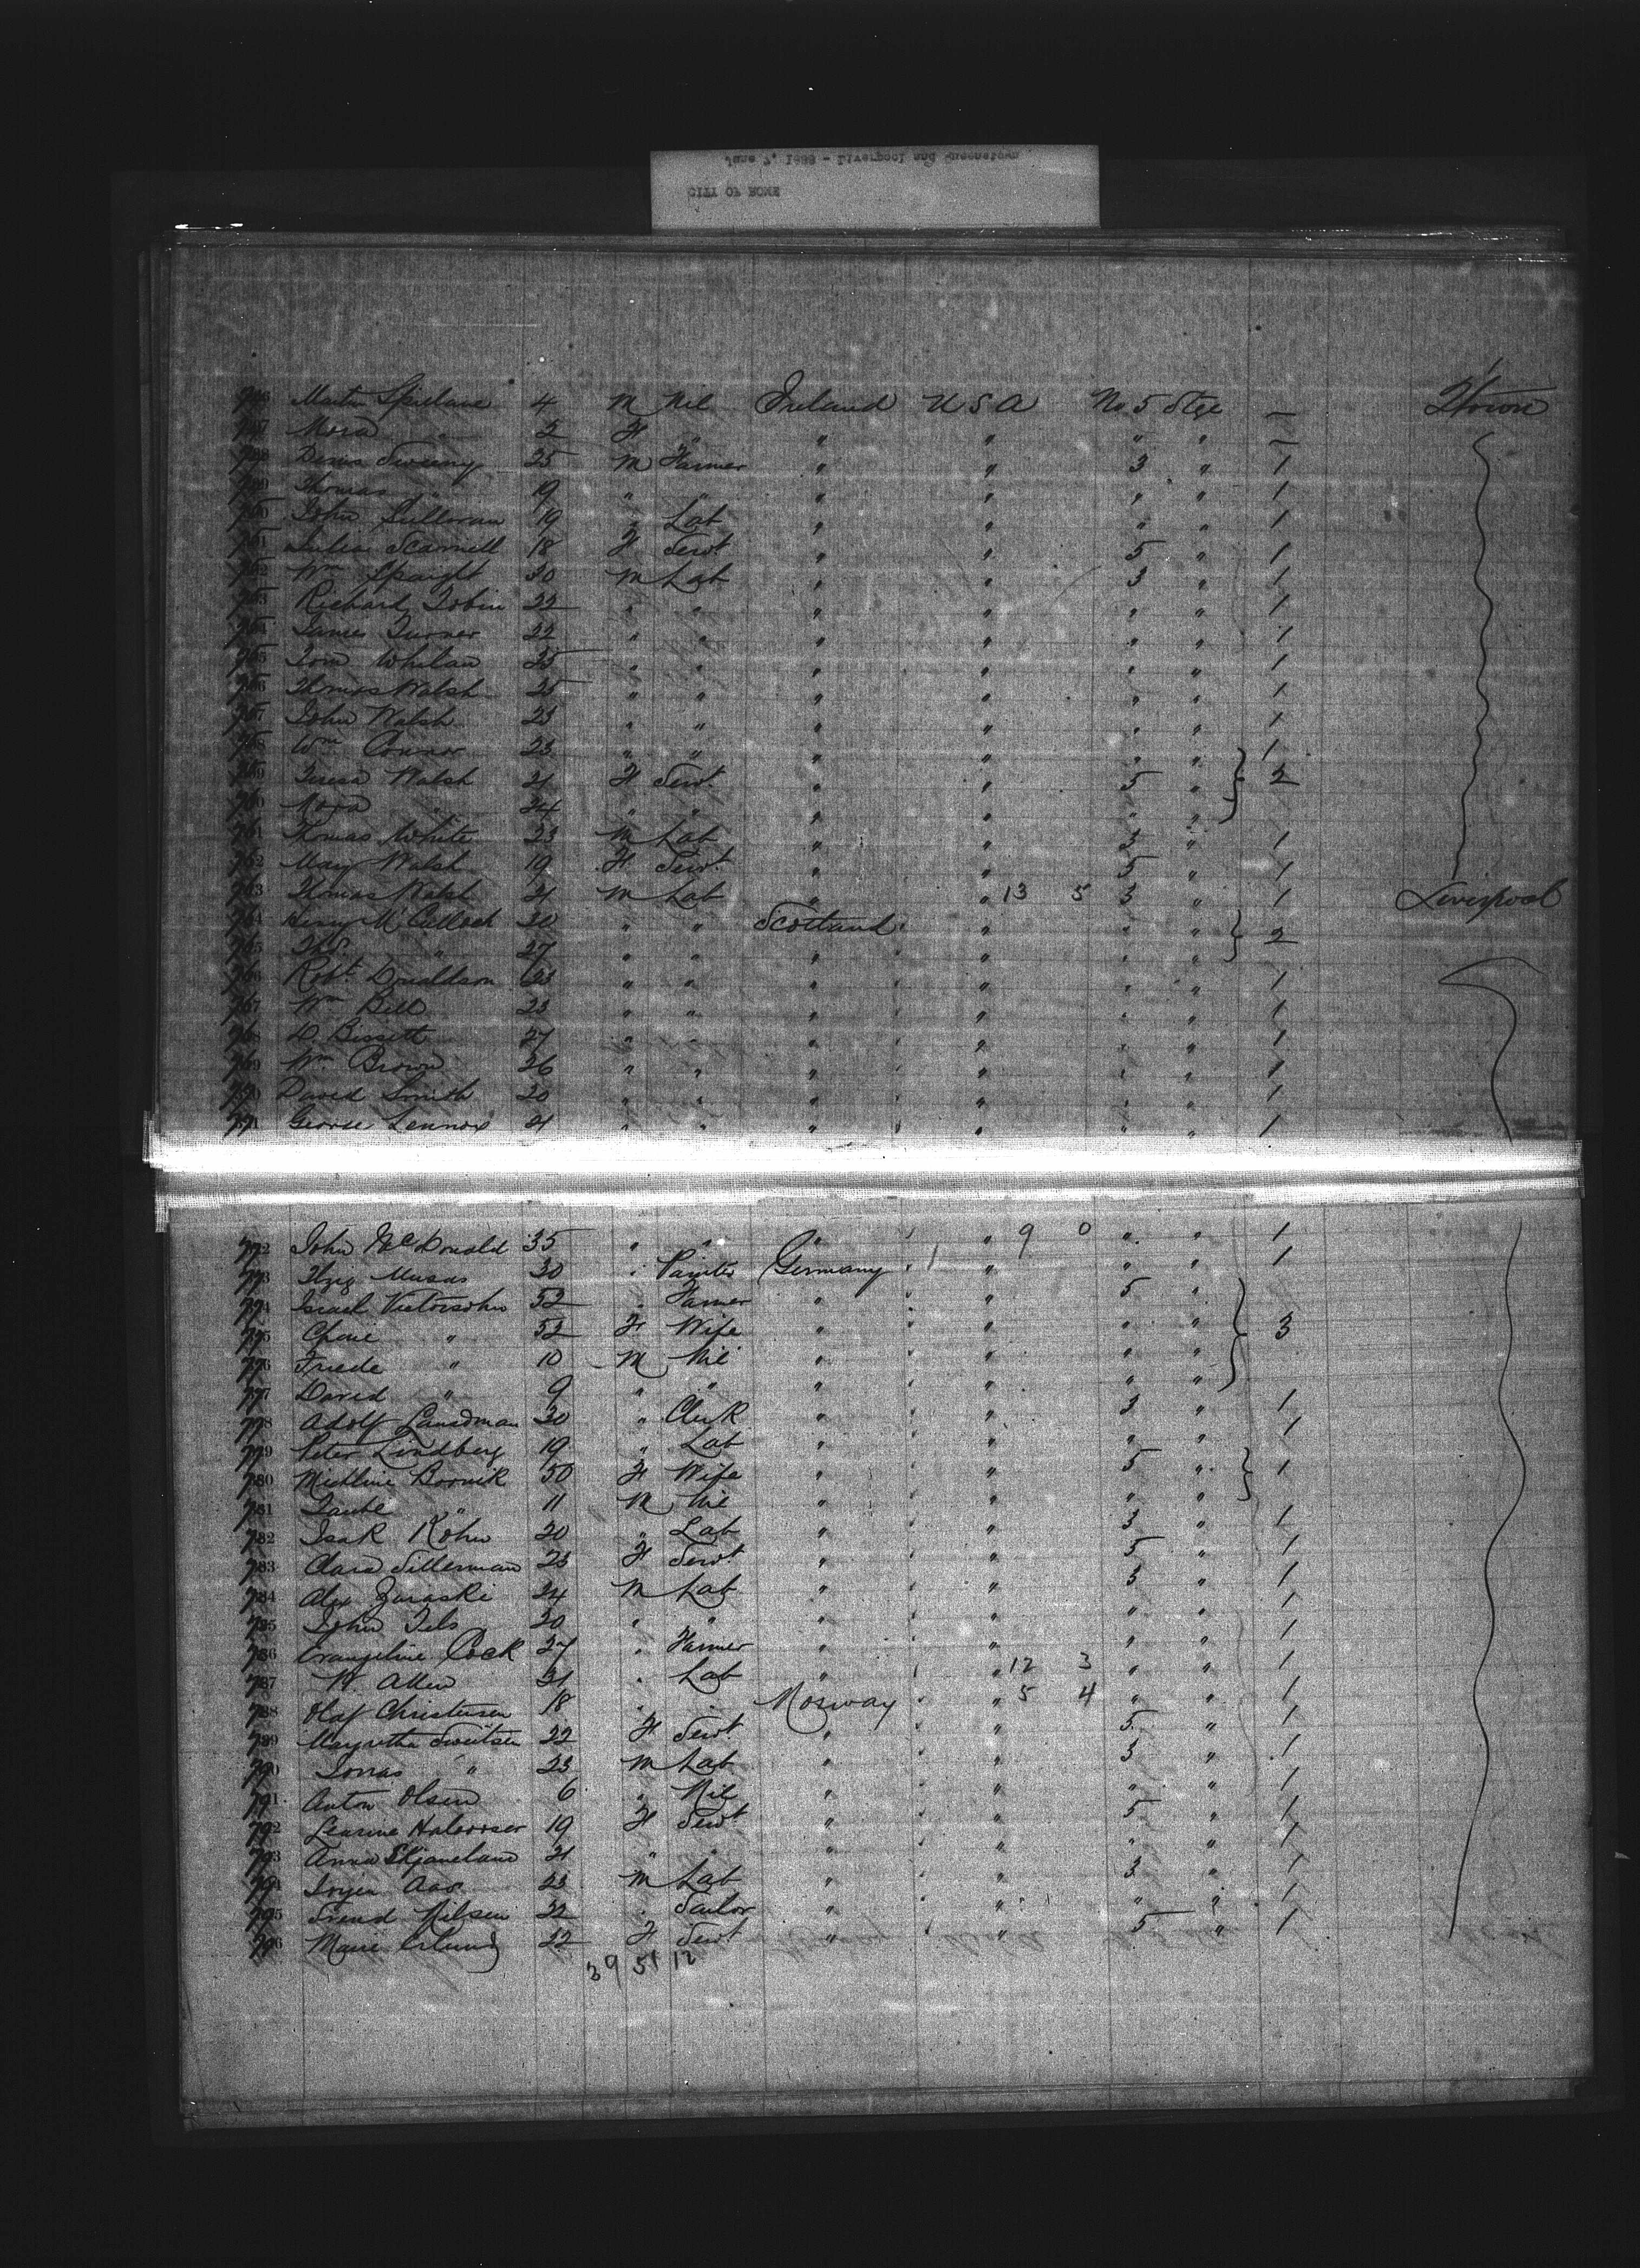 June 7, 1888 - Liverpool and Queenstown
CITY OF ROME
746 Martin Spielane 4 M Nil Ireland U S A No 5 Stge — Q'town
747 Mora " 2 F " " " " " —
748 Denis Sweeny 25 M Farmer " " 3 " 1
749 Thomas " 19 " " " " " " 1
750 John Sullivan 19 " Lab " " " " 1
751 Julia Scannell 18 F Servt " " 5 " 1
752 Wm Spaight 30 M Lab " " 3 " 1
753 Richard Tobin 22 " " " " " " 1
754 James Turner 22 " " " " " " 1
755 Tom Whelan 25 " " " " " " 1
756 Thomas Walsh 25 " " " " " " 1
757 John Walsh 23 " " " " " " 1
758 Wm Connor 23 " " " " " " 1
759 Teresa Walsh 21 F Servt " " 5 " } 2
760 Nora " 24 " " " " " "
761 Thomas White 23 M Lab " " 3 " 1
762 Mary Walsh 19 F Servt " " 5 " 1
763 Thomas Walsh 21 M Lab " " 13 5 3 " 1 Liverpool
764 Henry McCulloch 30 " " Scotland " " " } 2
765 Thos. " 27 " " " " " "
766 Robt Donaldson 23 " " " " " " 1
767 Wm Bell 23 " " " " " " 1
768 D Bissett 27 " " " " " " 1
769 Wm Brown 26 " " " " " " 1
770 David Smith 20 " " " " " " 1
771 George Lennox 21 " " " " " " 1
772 John McDonald 35 " " " " 9 0 " " 1
773 Itzig Musas 30 " Painter Germany " " " 1
774 Israel Victorsohn 52 " Farmer " " 5 " } 3
775 " 52 F Wife " " " "
776 Friede " 10 M Nil " " " "
777 David " 9 " " " " " "
778 Adolf Landman 30 " Clerk " " 3 " 1
779 Peter Lindberg 19 " Lab " " " " 1
780 Michline Bornik 50 F Wife " " 5 " } 1
781 Taube " 11 M Nil " " " "
782 Isak Kohn 20 " Lab " " 3 " 1
783 Clara Sillerman 23 F Servt " " 5 " 1
784 Alex Zuraski 24 M Lab " " 3 " 1
785 John Tels 20 " " " " " " 1
786 Evangeline Cock 27 " Farmer " " " " 1
787 W. Allen 31 " Lab " " 12 3 " " 1
788 Olaf Christensen 18 " " Norway " 5 4 " " 1
789 Margretha 22 F Servt " " 5 " 1
790 Jonas " 23 M Lab " " 3 " 1
791 Anton Olsen 6 " Nil " " " " 1
792 19 F Servt " " 5 " 1
793 Anna Skjaveland 21 " " " " " " 1
794 23 M Lab " " 3 " 1
795 Svend Nilsen 22 " Sailor " " " " 1
796 Marie 22 F Servt " " 5 " 1
39 51 12